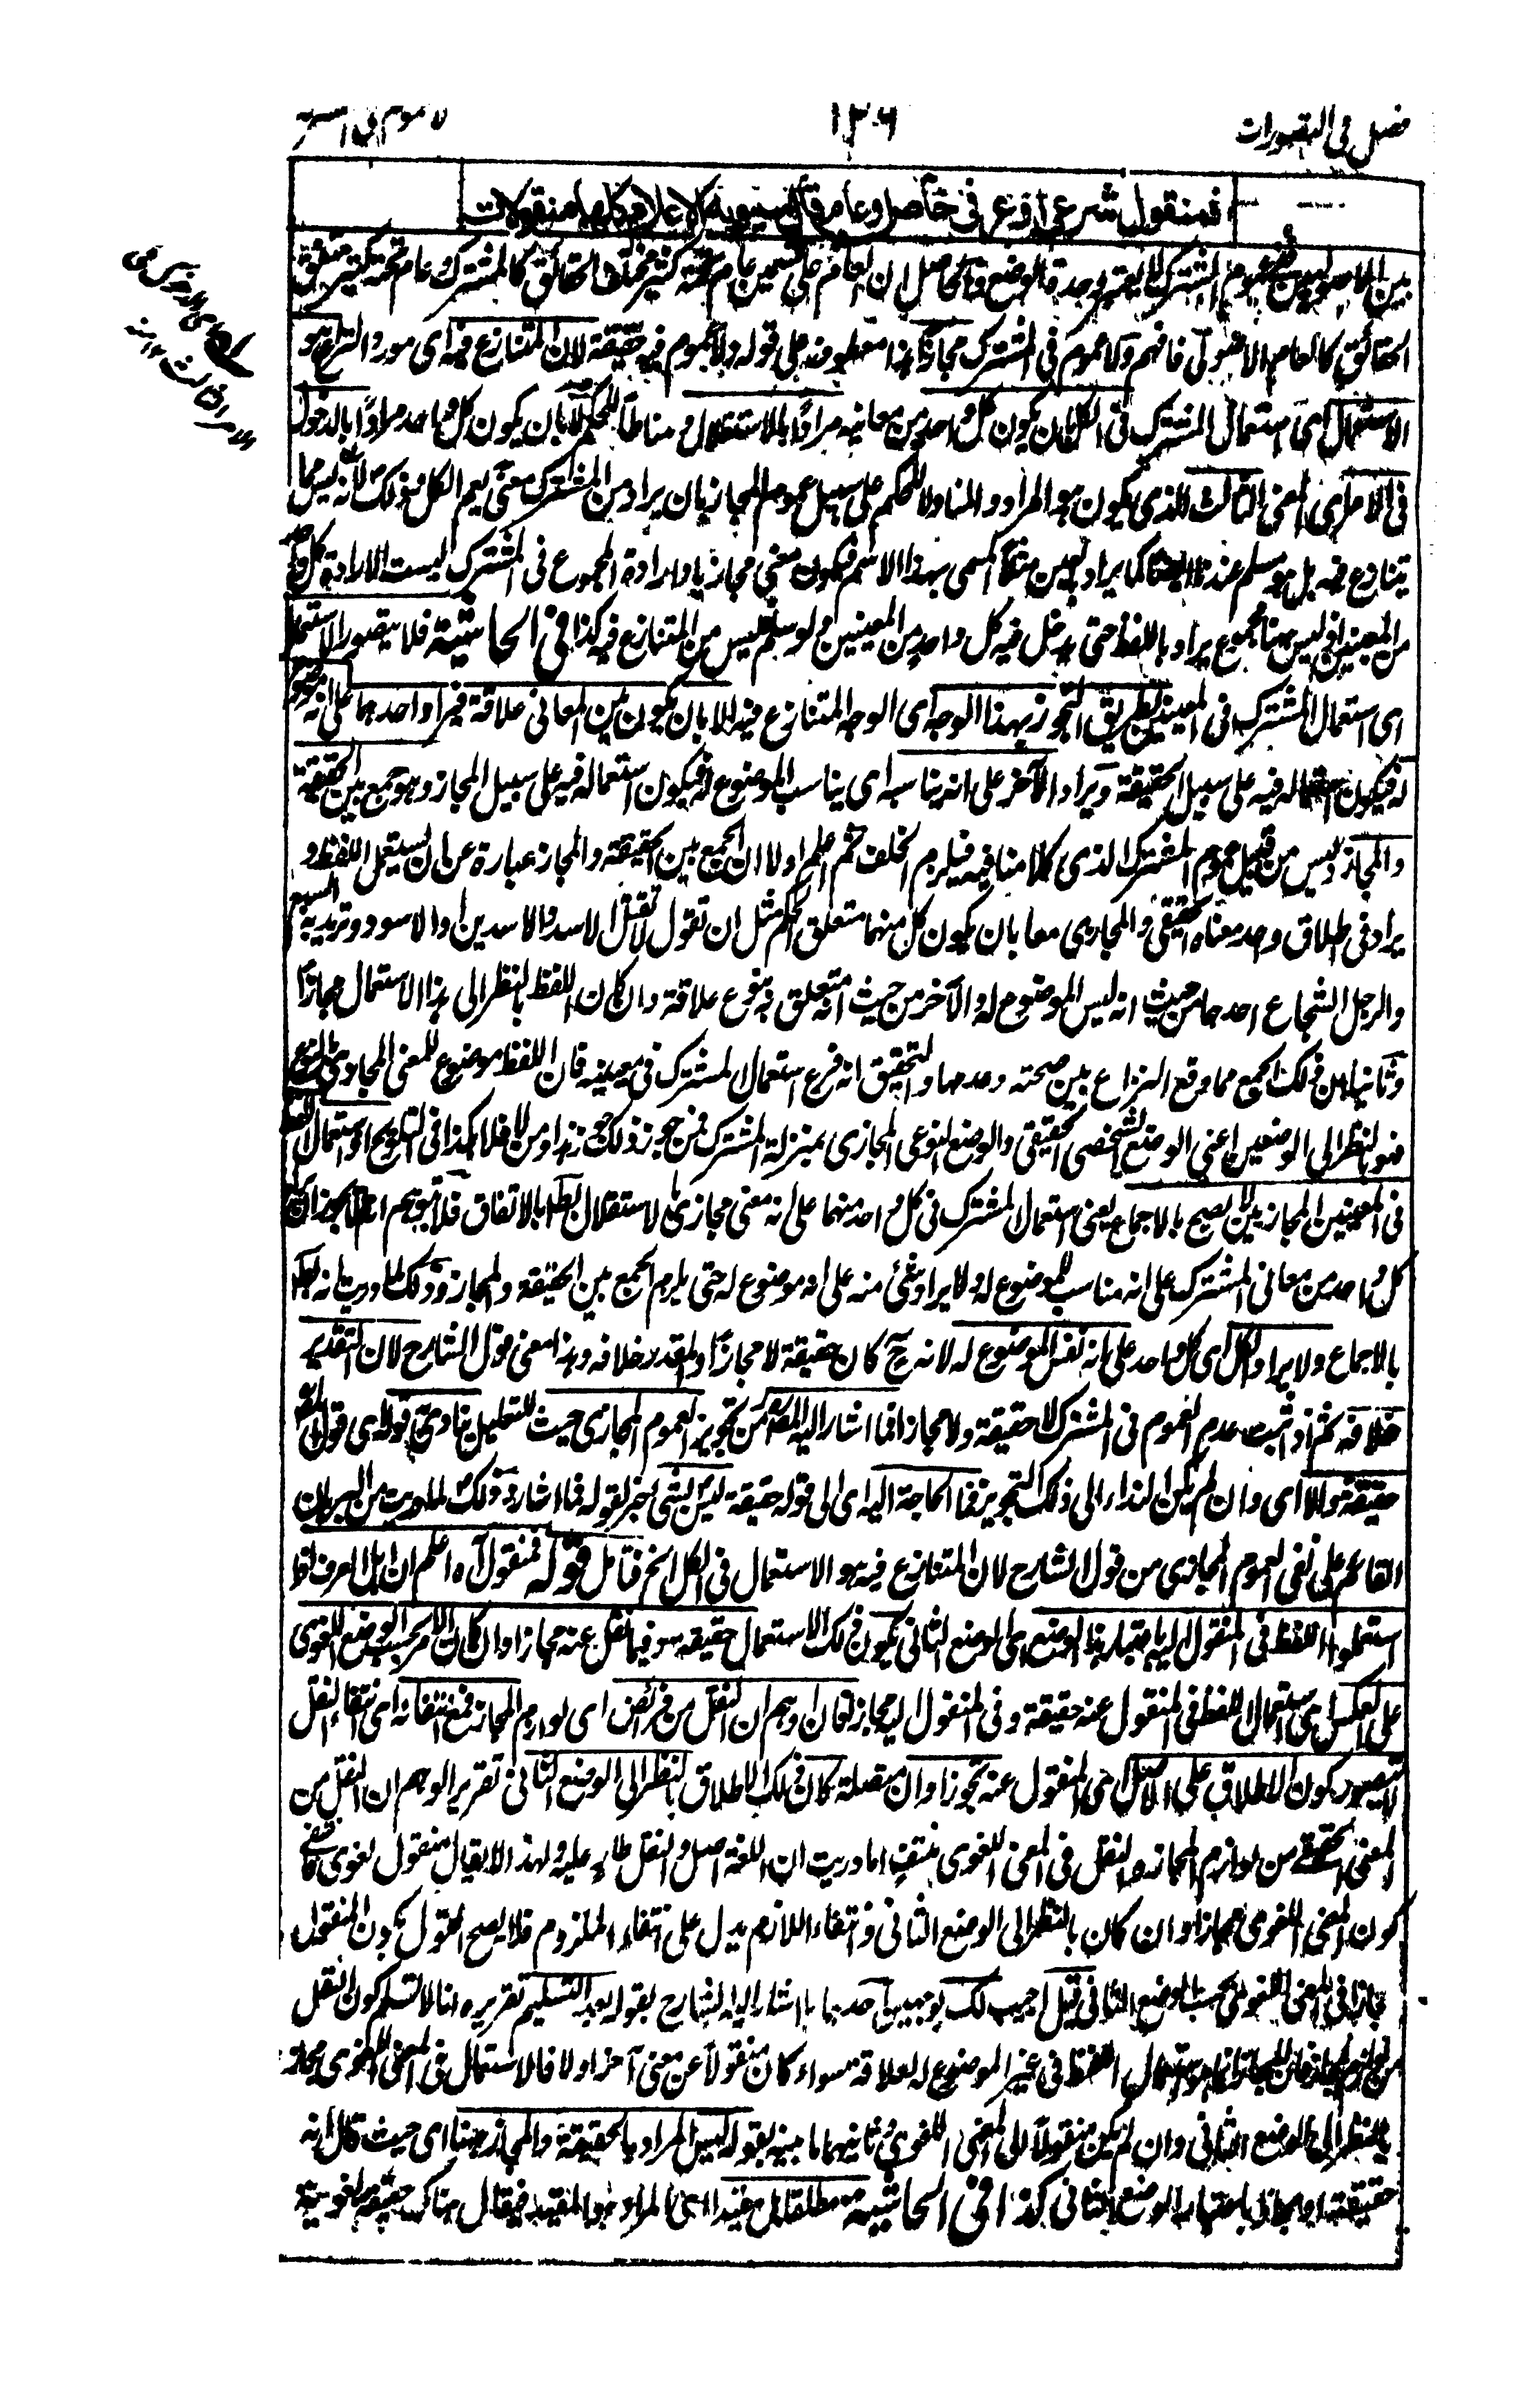 فصل فى التصورات
١٣٦
لا عموم فى المشترك
فمنقول شرعى او عرفى خاص او عام قال سيبويه الاعلام كلها منقولات
بين الاصوليين عموم المشترك لا يعتبر وحدة الوضع فالحاصل ان العام على قسمين عام تحته كثير مختلف الحقائق كالمشترك وعام تحته كثير متفق
الحقائق كالعام الاصولى فافهم ولا عموم فى المشترك مجازا هذا معطوف على قوله ولا عموم فيه حقيقة لان المتنازع فيه اى مورد النزاع هو
الاستعمال اى استعمال المشترك فى الكل بان يكون كل واحد من معانيه مرادا بالاستقلال و مناطا للحكم لا بان يكون كل واحد مرادا بالدخول
فى الامر اى المعنى الثالث الذى يكون هو المراد و المناط للحكم على سبيل عموم المجاز بان يراد من المشترك معنى يعم الكل فذلك لانه ليس مما
يتنازع فيه بل هو مسلم عندنا ايضا كما يراد بالعين مثلا المسمى بهذا الاسم فيكون معنى مجازيا وارادة المجموع فى المشترك ليست الا ارادة كل واحد
من المعنيين اذ ليس هنا مجموع يراد باللفظ حتى يدخل فيه كل واحد من المعنيين ولو سلم فليس من المتنازع فيه كذا فى الحاشية فلا يتصور الاستعمال
اى استعمال المشترك فى المعنيين بطريق التجوز بهذا الوجه اى الوجه المتنازع فيه الا بان يكون بين المعانى علاقة فيراد احدهما على انه موضوع
له فيكون استعماله فيه على سبيل الحقيقة ويراد الآخر على انه يناسبه اى يناسب الموضوع له فيكون استعماله فيه على سبيل المجاز وهو جمع بين الحقيقة
والمجاز وليس من قبيل عموم المشترك الذى كلامنا فيه فيلزم الخلف ثم اعلم اولا ان الجمع بين الحقيقة والمجاز عبارة عن ان يستعمل اللفظ و
يراد فى اطلاق واحد معناه الحقيقى والمجازى معا بان يكون كل منهما متعلق الحكم مثل ان تقول لا تقتل الاسد والاسدين والاسود وتريد به السبع
والرجل الشجاع احدهما من حيث انه ليس الموضوع له والآخر من حيث انه متعلق به بنوع علاقة وان كان اللفظ بالنظر الى هذا الاستعمال مجازا
وثانيا ان ذلك الجمع مما وقع النزاع بين صحته وعدمها والتحقيق انه فرع استعمال المشترك فى معنييه فان اللفظ موضوع للمعنى المجازى بالنوع
فهو بالنظر الى الوضعين اعنى الوضع الشخصى الحقيقى والوضع النوعى المجازى بمنزلة المشترك فمن جوز ذلك جوز هذا ومن لا فلا هكذا فى التلويح واستعمال اللفظ
فى المعنيين المجازيين لا يصح بالاجماع يعنى استعمال المشترك فى كل واحد منهما على انه معنى مجازى بالاستقلال باطل بالاتفاق فلا يتوهم انه يجوز ان يراد
كل واحد من معانى المشترك على انه مناسب للموضوع له ولا يراد شئ منه على انه موضوع له حتى يلزم الجمع بين الحقيقة والمجاز وذلك لما دريت انه باطل
بالاجماع ولا يراد الكل اى كل واحد على انه نفس الموضوع له لانه ح كان حقيقة لا مجازا والمقدر خلافه وهذا معنى قول الشارح لان التقدير
خلافه ثم اذ ثبت عدم العموم فى المشترك لا حقيقة ولا مجازا فما اشار اليه المصنف من تجويز العموم المجازى حيث للتعليل ينادى قوله اى قول المصنف
حقيقة والا اى وان لم يكن النداء الى ذلك التجويز فما الحاجة اليه اى الى قوله حقيقة ليس بشئ خبر لقوله فما اشار وذلك لما دريت من البرهان
القائم على نفى العموم المجازى من قول الشارح لان المتنازع فيه هو الاستعمال فى الكل الخ فتامل قوله فمنقول آه اعلم ان اهل العرف اذا
استعملوا اللفظ فى المنقول اليه باعتبار هذا الوضع اى الوضع الثانى يكون ذلك الاستعمال حقيقة وهو فيما نقل عنه مجازا وان كان الامر بحسب الوضع اللغوى
على العكس اى استعمال اللفظ فى المنقول عنه حقيقة وفى المنقول اليه مجاز لغة ان وهم ان النقل من فرائض اى لوازم المجاز فمع انتفائه اى انتفاء النقل
لا يتصور كون الاطلاق على الاصل اى المنقول عنه تجوزا وان وصلية كان ذلك الاطلاق بالنظر الى الوضع الثانى تقرير الوهم ان النقل من
المعنى الحقيقى من لوازم المجاز والنقل فى المعنى اللغوى منتف اما دريت ان اللغة اصل والنقل طار عليه ولهذا لا يقال منقول لغوى فانتفى
كون المعنى اللغوى مجازا وان كان بالنظر الى الوضع الثانى وانتفاء اللازم يدل على انتفاء الملزوم فلا يصح القول بكون المنقول
مجازا فى المعنى اللغوى بحسب الوضع الثانى قيل اجيب لك بوجهين احدهما ما اشار اليه الشارح بقوله بعد التسليم تقريره انا لا نسلم كون النقل
من لوازم المجاز فان المجاز انما هو استعمال اللفظ فى غير الموضوع له لعلاقة سواء كان منقولا عن معنى آخر اولا فالاستعمال فى المعنى اللغوى مجاز
بالنظر الى الوضع الثانى وان لم يكن منقولا الى المعنى اللغوى وثانيهما ما بينه بقوله ليس المراد بالحقيقة والمجاز هنا اى حيث قال انه
حقيقة او مجاز باعتبار الوضع الثانى كذا فى الحاشية مطلقا بل مقيدا اى المراد هو المقيد فيقال هناك حقيقة لغوية